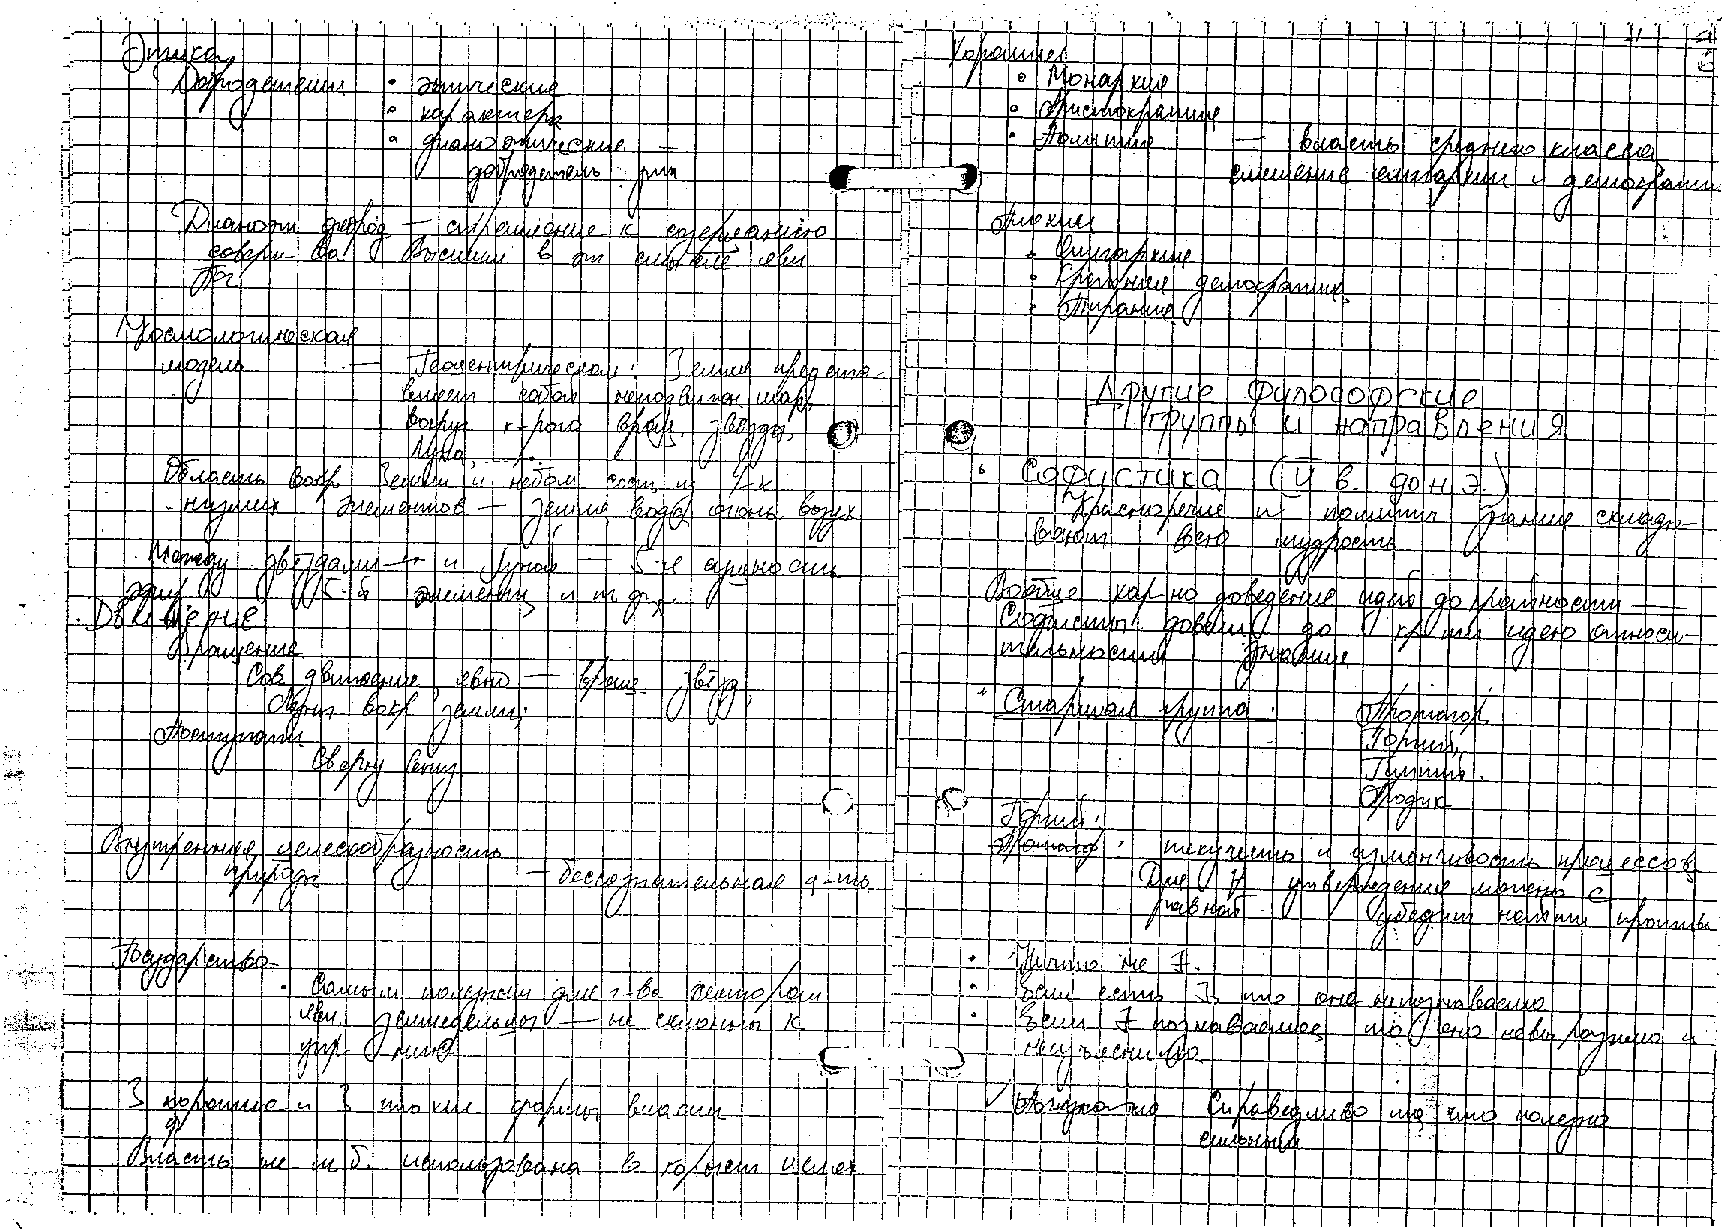 Этика
Добродетели • этические
• характера
• дианоэтические —
добродетель
Дианоэт. доброд — стремление к созерцанию
соверш-ва! Высшим в эт смысле явл
Бог
Космологическая
модель — Геоцентрическая: Земля предста-
вляет собой неподвижн шар,
вокруг к-рого вращ. звезды,
Луна, ...
Область вокр Земли и небом сост из 4-х
низших элементов — земля, вода, огонь, воздух
Между звездами и Луной — 5-е сущность
эфир, 5-й элемент и т д.
Движение
Вращение
Сов движение явл — вращ звезд,
вокр земли;
Поступат.
Сверху вниз
Внутренняя целесообразность
природы — бессознательная д-ть
Государство
• Самым полезным для г-ва сектором
явл земледельцы — не склонны к
3 хорошие и 3 плохие формы власти
Власть не м.б. использована в корыст целях
Хорошие
• Монархия
• Аристократия
• Полития — власть среднего класса,
смешение олигархии и демократии
Плохие
• Олигархия
• Крайняя демократия
• Тирания
Другие философские
группы и направления
• Софистика (V в. до н.э.)
Красноречие и политич знание склады-
вают всю мудрость
Вообще хар-но доведение идей до крайности —
Софисты довели до кр-ти идею относи-
тельности знания
• Старшая группа: Протагор,
Горгий,
Гиппий,
Продик
Горгий:
Протагор: текучесть и изменчивость процессов
Для утверждения можно с
равной убедит найти против
• Ничто не Ǝ.
• Если есть Ǝ, то оно непознаваемо
• Если Ǝ познаваемое, то оно невыразимо и
необъяснимо
✓ Справедливо то, что полезно
сильным